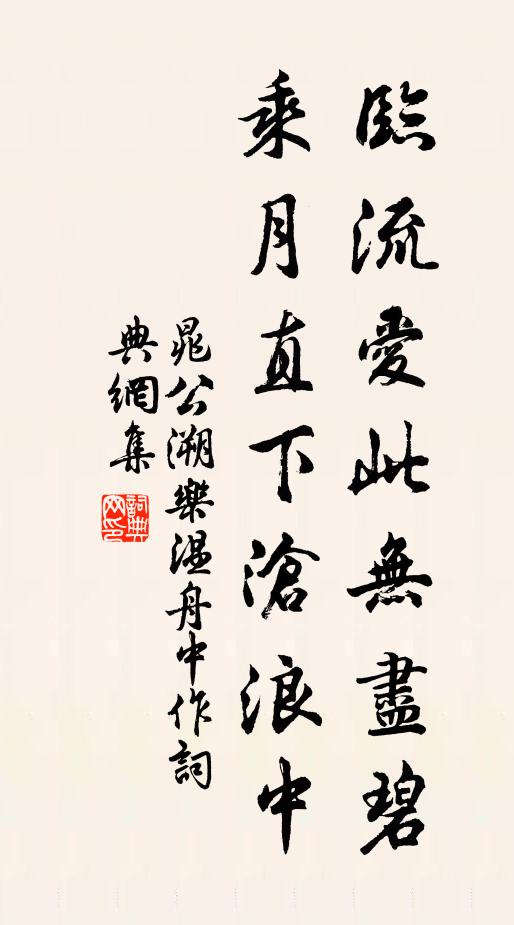 臨流愛此無盡碧
乘月直下滄浪中
晁公溯樂溫舟中作詞
典網集
詞典
网印